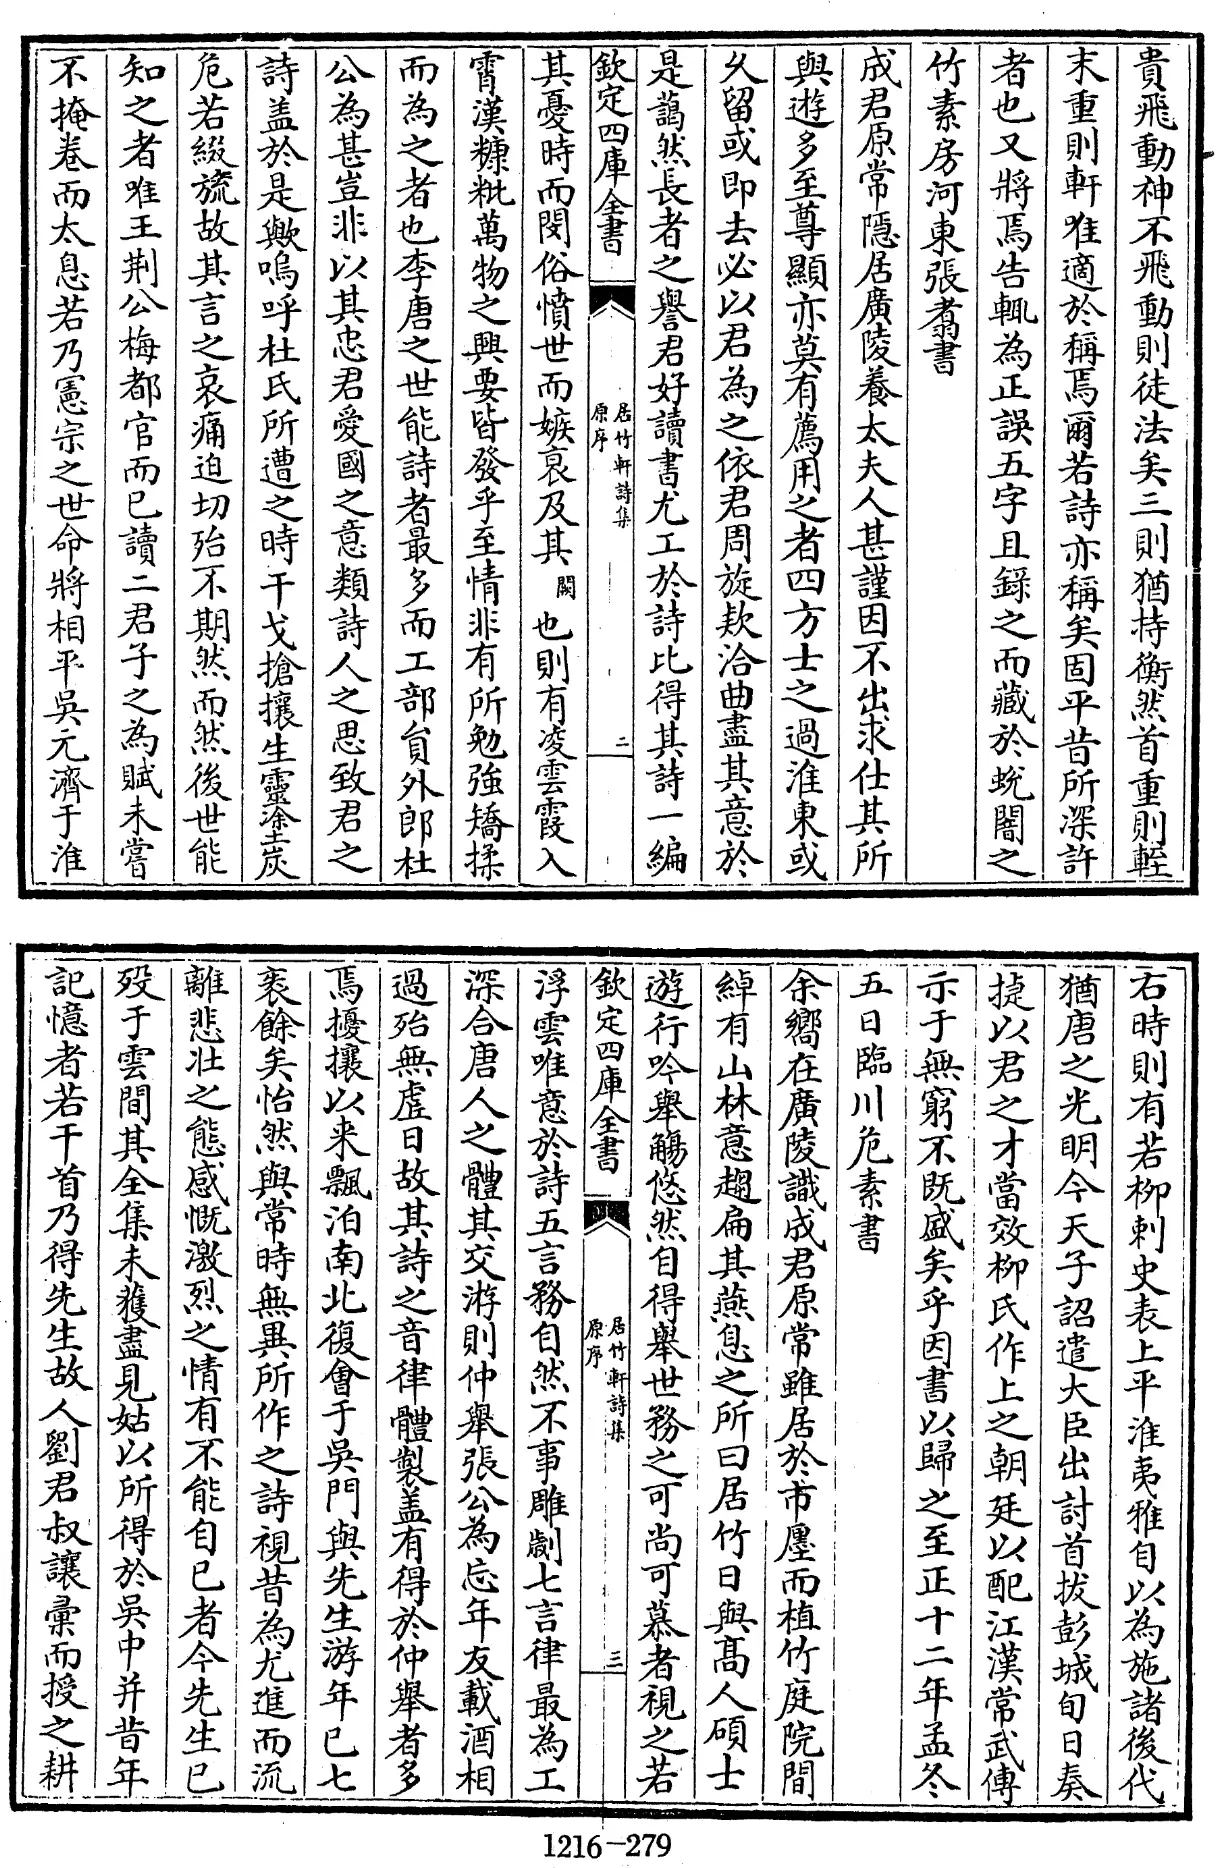 貴飛動神不飛動則徒法矣三則猶持衡然首重則輊
末重則軒唯適於稱焉爾若詩亦稱矣固平昔所深許
者也又將焉告輒為正誤五字且録之而藏於蛻闇之
竹素房河東張翥書
成君原常隱居廣陵養太夫人甚謹因不出求仕其所
與遊多至尊顯亦莫有薦用之者四方士之過淮東或
久留或即去必以君為之依君周旋欵洽曲盡其意於
是藹然長者之譽君好讀書尤工於詩比得其詩一編
欽定四庫全書
居竹軒詩集
原序
二
其憂時而閔俗憤世而嫉哀及其闕也則有凌雲霞入
霄漢糠粃萬物之興要皆發乎至情非有所勉強矯揉
而為之者也李唐之世能詩者最多而工部貟外郎杜
公為甚豈非以其忠君愛國之意類詩人之思致君之
詩盖於是歟嗚呼杜氏所遭之時干戈搶攘生靈塗炭
危若綴旒故其言之哀痛迫切殆不期然而然後世能
知之者唯王荆公梅都官而已讀二君子之為賦未嘗
不掩卷而太息若乃憲宗之世命將相平吳元濟于淮
右時則有若栁刺史表上平淮夷雅自以為施諸後代
猶唐之光明今天子詔遣大臣出討首拔彭城旬日奏
捷以君之才當效栁氏作上之朝廷以配江漢常武傳
示于無窮不既盛矣乎因書以歸之至正十二年孟冬
五日臨川危素書
余嚮在廣陵識成君原常雖居於市廛而植竹庭院間
綽有山林意趣扁其燕息之所曰居竹日與髙人碩士
遊行吟舉觴悠然自得舉世務之可尚可慕者視之若
欽定四庫全書
居竹軒詩集
原序
三
浮雲唯意於詩五言務自然不事雕劌七言律最為工
深合唐人之體其交游則仲舉張公為忘年友載酒相
過殆無虗日故其詩之音律體製盖有得於仲舉者多
焉擾攘以来飄泊南北復會于吳門與先生游年已七
袠餘矣怡然與常時無異所作之詩視昔為尤進而流
離悲壯之態感慨激烈之情有不能自已者今先生已
殁于雲間其全集未獲盡見姑以所得於吳中并昔年
記憶者若干首乃得先生故人劉君叔讓彙而授之耕
1216—279